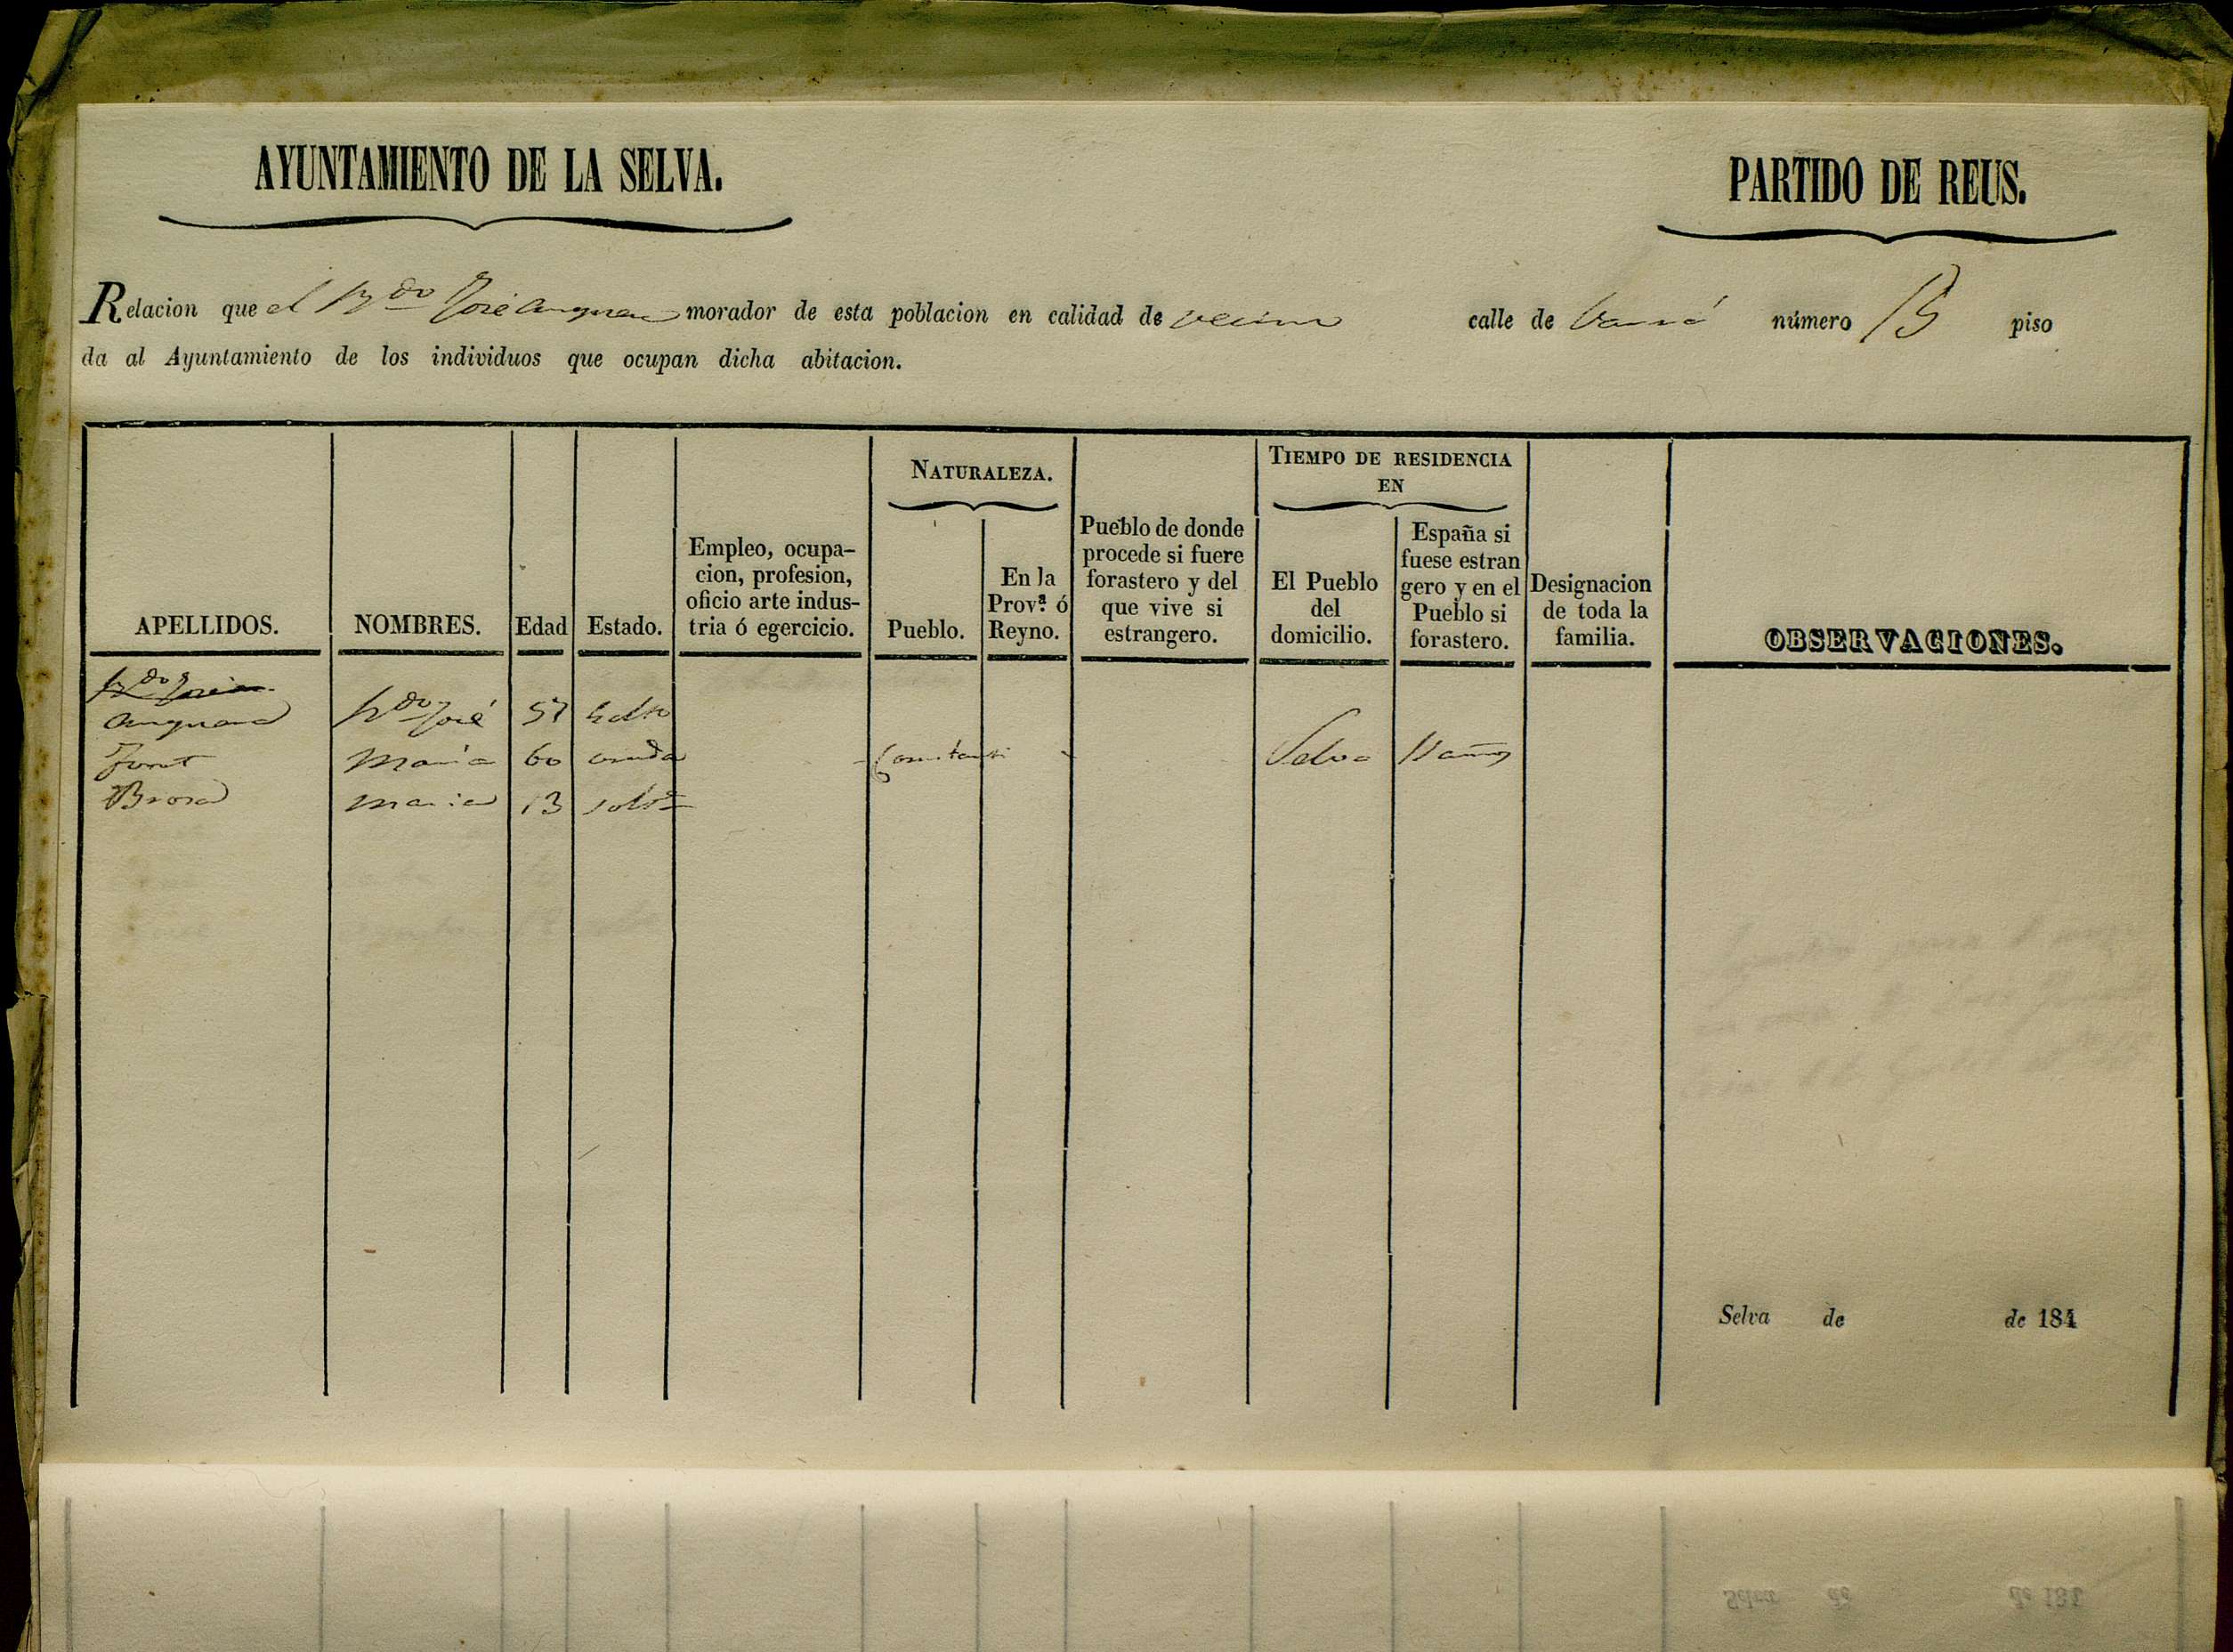 AYUNTAMIENTO DE LA SELVA.
PARTIDO DE REUS.
Relacion que el Rdo José morador de esta poblacion en calidad de vecino calle de número 15 piso
da al Ayuntamiento de los individuos que ocupan dicha abitacion.
APELLIDOS.
NOMBRES.
Edad
Estado.
Empleo, ocupa-
cion, profesion,
oficio arte indus-
tria ó egercicio.
NATURALEZA.
Pueblo.
En la
Prov.ª ó
Reyno.
Pueblo de donde
procede si fuere
forastero y del
que vive si
estrangero.
TIEMPO DE RESIDENCIA
EN
El Pueblo
del
domicilio.
España si
fuese estran
gero y en el
Pueblo si
forastero.
Designacion
de toda la
familia.
OBSERVACIONES.
Rdo José 57 solto
María 60 viuda Constanti Selva 11 años
Maria 13 solta
Selva de de 184